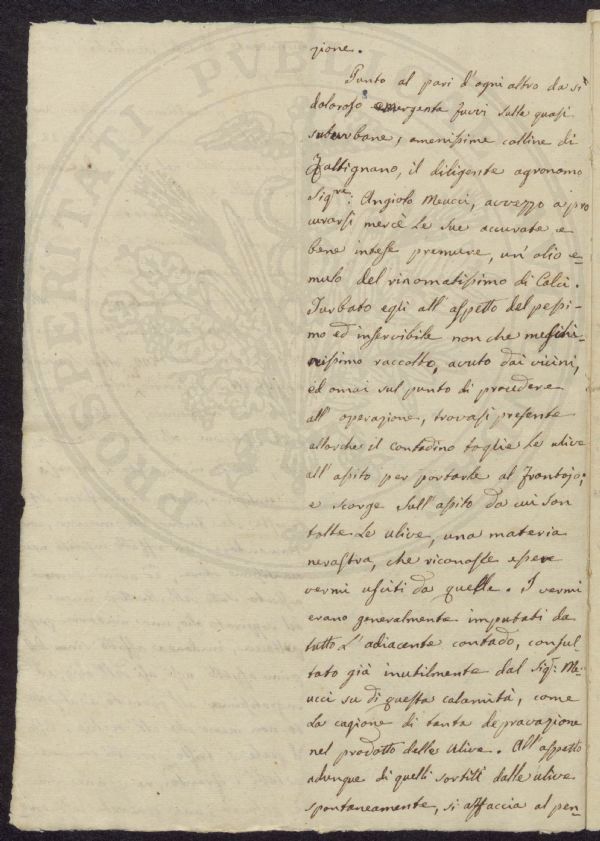 zione.
Punto al pari d'ogni altro da sì
doloroso emergente fuvvi sulle quasi
suburbane, amenissime colline di
Zaltignano, il diligente agronomo
Sig.re: Angiolo Meucci, avvezzo a pro
curarsi mercè le sue accurate e
bene intese premure, un'olio e-
mulo del rinomatissimo di Calci.
Turbato egli all'aspetto del pessi-
mo ed inservibile non che meschi-
nissimo raccolto, avuto dai vicini,
ed omai sul punto di procedere
all'operazione, trovasi presente
allorchè il contadino toglie le ulive
all'assito per portarle al Frantojo;
e scorge sull'assito da cui son
tolte le ulive, una materia
nerastra, che riconosce essere
vermi usciti da quelle. I vermi
erano generalmente imputati da
tutto l'adiacente contado, consul-
tato già inutilmente dal Sig.: Me-
ucci su di questa calamità, come
la cagione di tanta depravazione
nel prodotto delle ulive. All'aspetto
adunque di quelli sortiti dalle ulive
spontaneamente, si affaccia al pen-
PROSPERITATI PVBLIC